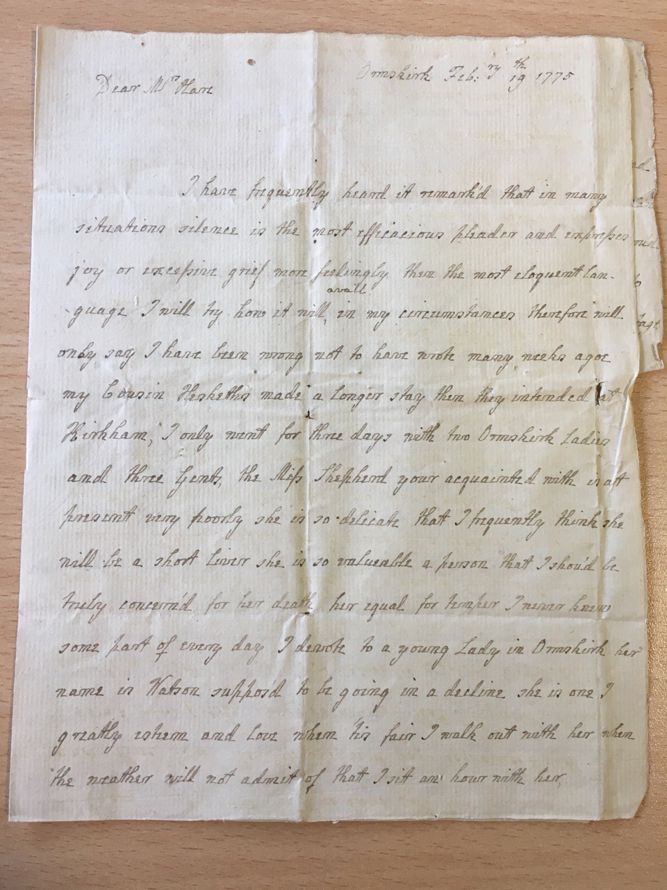 Ormskirk Feb:ry 19th 1775
Dear Mrs Hare
I have frequently heard it remark'd that in many
situations silence is the most efficacious pleader and expresses
joy or excessive grief more feelingly then the most eloquent Lan-
-guage I will try how it will avail in my circumstances therefore will
only say I have been wrong not to have wrote many weeks agoe
my Cousin Heskeths made a longer stay then they intended at
Kirkham, I only went for three days with two Ormskirk Ladies
and three Gents, the Miss Shepherd your acquainted with is att
present very poorly she is so delicate that I frequently think she
will be a short liver she is so valueable a person that I shou'd be
truly concern'd for her death, her equal for temper I never knew
some part of every day I devote to a young Lady in Ormskirk her
name is Watson suppos'd to be going in a decline she is one I
greatly esteem and love when 'tis fair I walk out with her when
the weather will not admit of that I sit an hour with her,